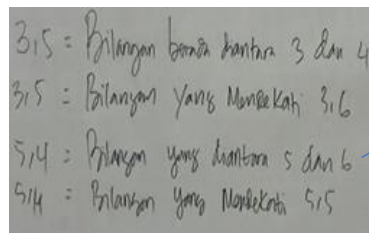 3,5 = Bilangan berada diantara 3 dan 4
3,5 = Bilangan yang Mendekati 3,6
5,4 = Bilangan yang diantara 5 dan 6
5,4 = Bilangan yang Mendekati 5,5